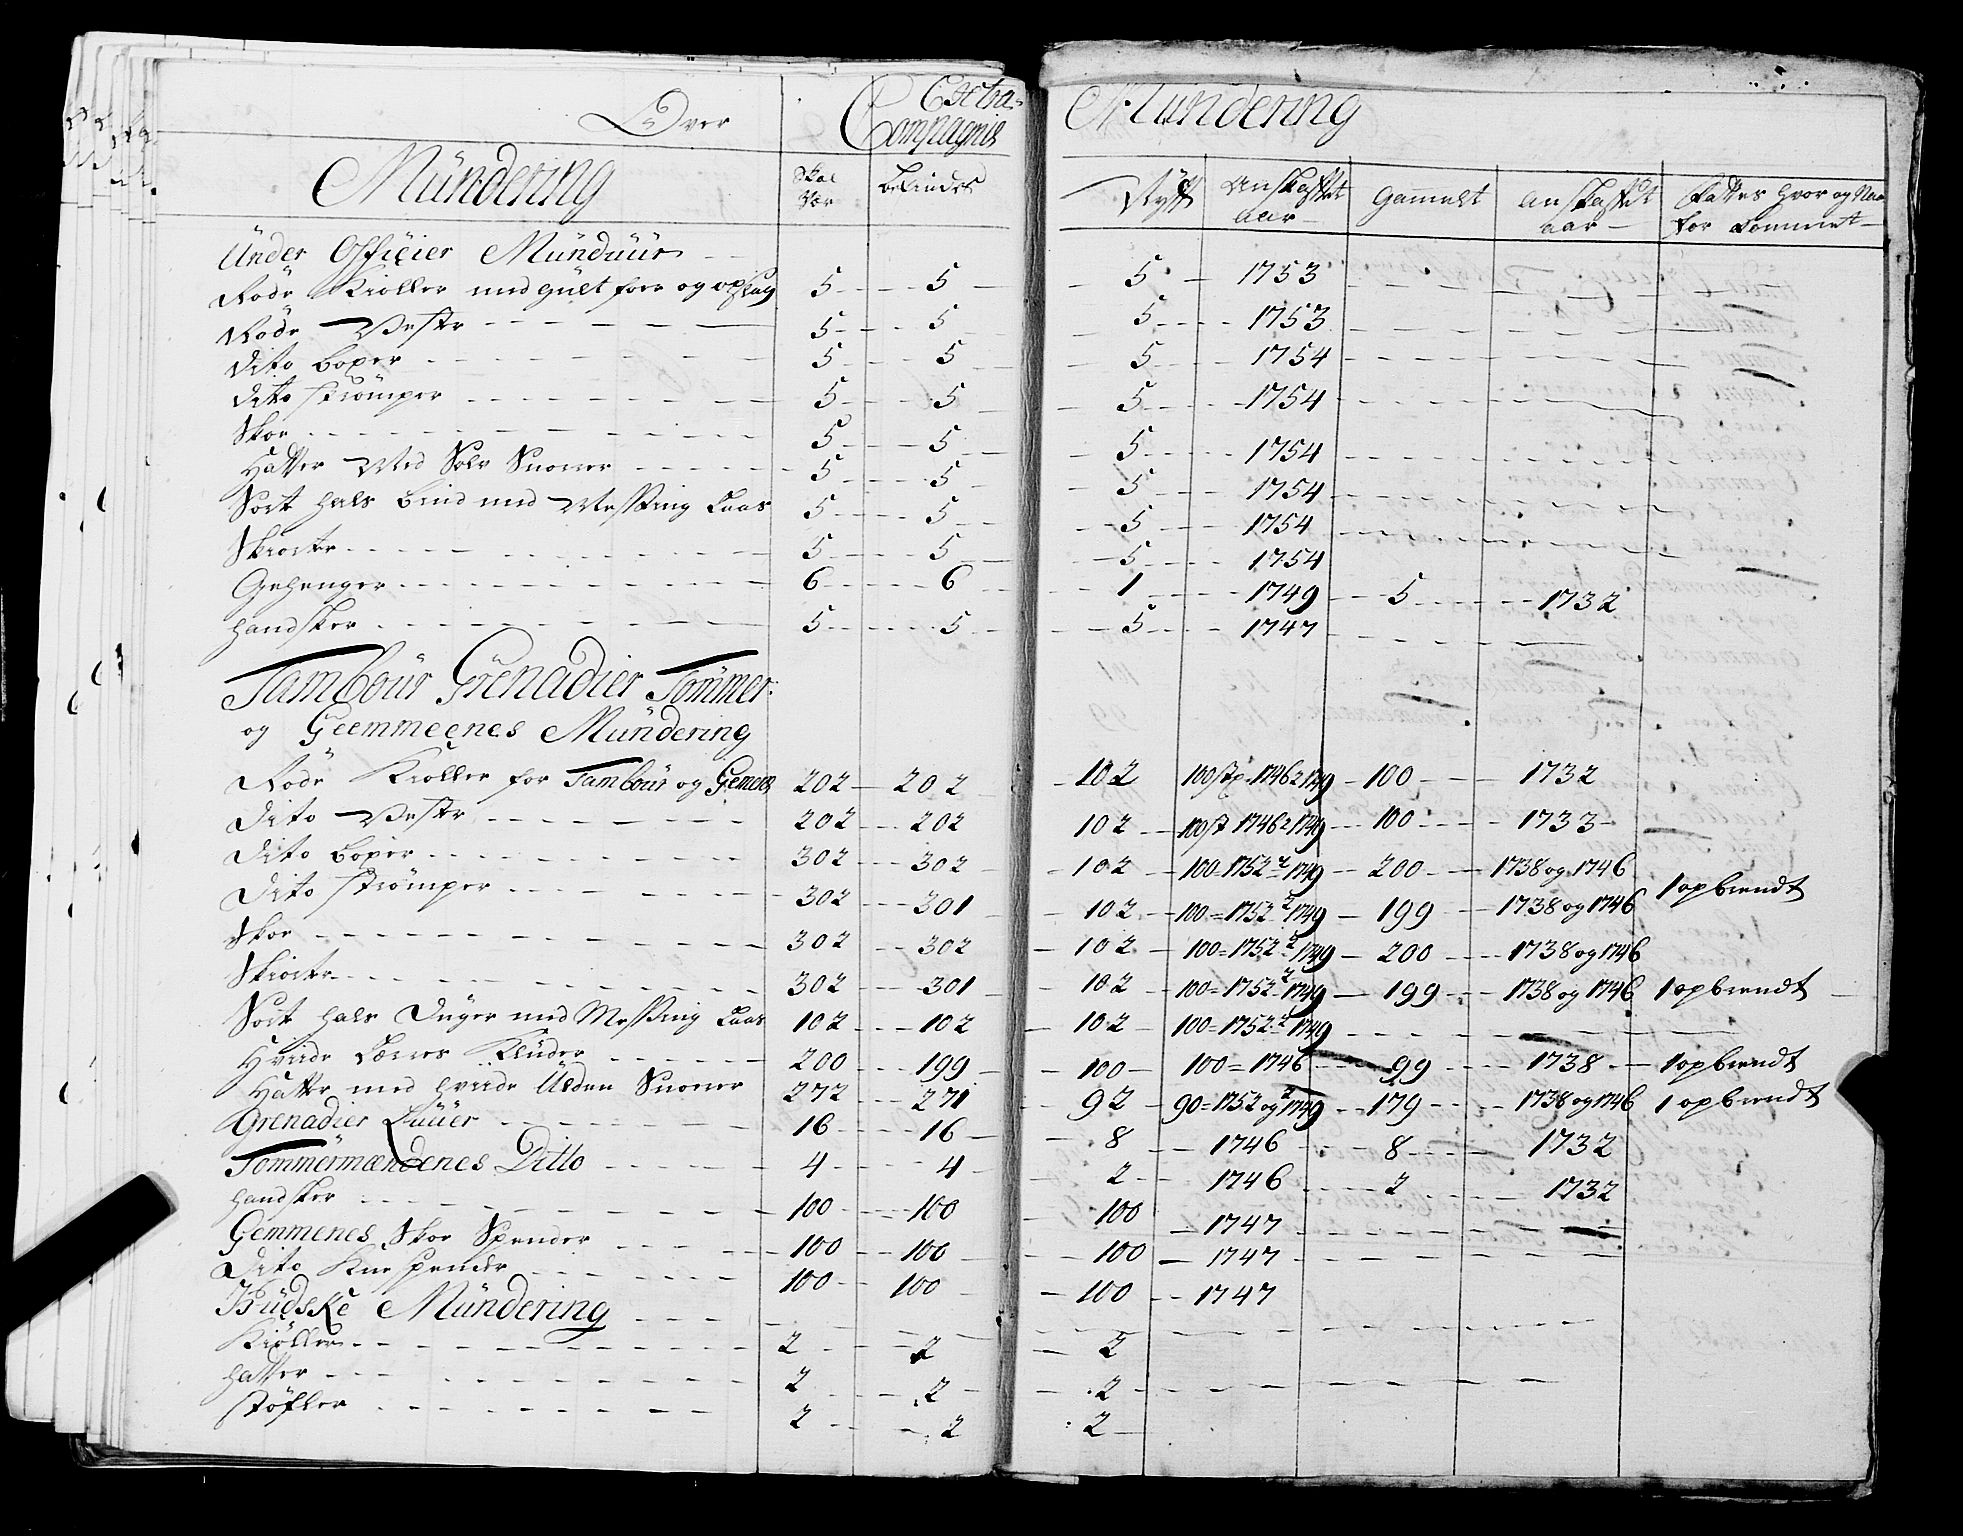 Over Extra- Mundering
Compagnie
Mündering Skal Vær befindes Nÿtt Anskaffet Aar Gammelt anskaffet aar Fattes hvor og Naar for kommet
Ünder Officier Mündüür
Röde Kioller med gült foer og opslag 5 5 5 1753
Röde Veste 5 5 5 1753
Dito boxer 5 5 5 1754
Dito strömper 5 5 5 1754
Skoe 5 5 5 1754
Hatter Med Sölv Snorer 5 5 5 1754
Sort hals bind med Messing Laas 5 5 5 1754
Skiorte 5 5 5 1754
Gehenger 6 6 1 1749 5 1732
handsker 5 5 5 1747
Tambour Grenadier Tömmer:
og Geemmeenes Mündering
Röde Kioller for Tambour og Gemens 202 202 102 100 st 1746 2 1749 100 1732
Dito Veste 202 202 102 100 st 1746 2 1749 100 1733
Dito boxer 302 302 102 100=1752 2 1749 200 1738 og 1746
Dito strömper 302 301 102 100=1752 2 1749 199 1738 og 1746 1 opbrendt
Skoe 302 302 102 100=1752 2 1749 200 1738 og 1746
Skiorte 302 301 102 100=1752 2 1749 199 1738 og 1746 1 opbrendt
Sort hals Duger med Messing Laas 102 102 102 100=1752 2 1749
Hviide Lerres Klüder 200 199 100 100=1746 99 1738 1 opbrendt
Hatte med hviide Ulden Snorer 272 271 92 90=1752 og 2 1749 179 1738 og 1746 1 opbrendt
Grenadier Lüüer 16 16 8 1746 8 1732
Tömmermændenes Ditto 4 4 2 1746 2 1732
handsker 100 100 100 1747
Gemmenes Skoe Spender 100 100 100 1747
Dito Knespender 100 100 100 1747
Küdske Mündering
Kiöller 2 2 2
hatter 2 2 2
stöfler 2 2 2